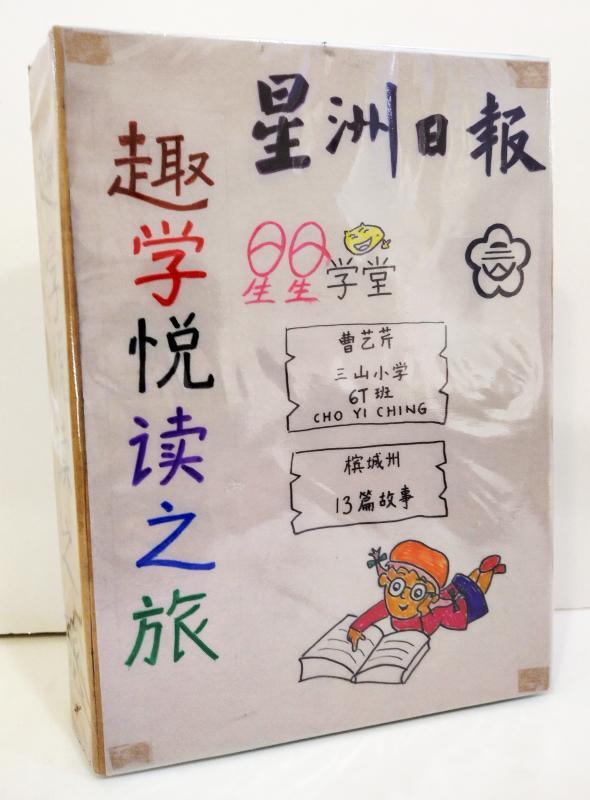 星洲日報
趣学悦读之旅
星星学堂
曹艺芹
三山小学
6T 班
CHO YI CHING
槟城州
13篇故事